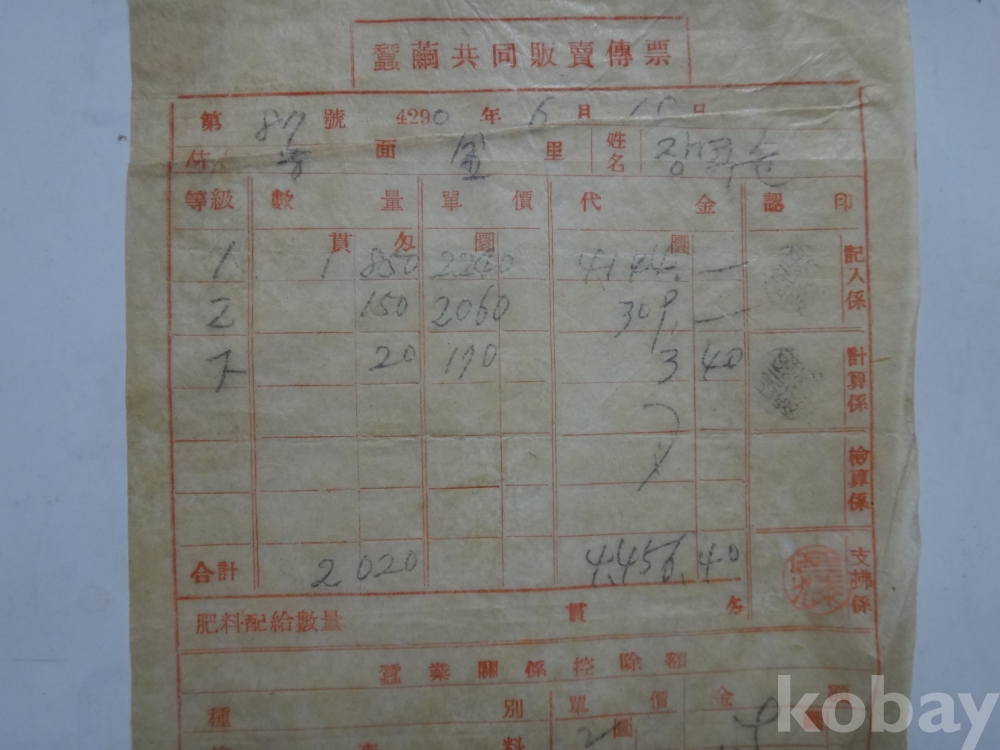 蠶繭共同販賣傳票
第 87 號 4290 年 6 月 日
面 里 姓名
等級 數 量 單 價 代 金 認 印
貫 匁 圜 圜
1 1 850 2240 4,144. — 記入係
2 150 2060 309, —
下 20 170 3 40 計算係
檢算係
合計 2 020 4,456.40 支拂係
肥料配給數量 貫 匁
蠶業關係控除額
種 別 單 價 金 額
料 圜
kobay